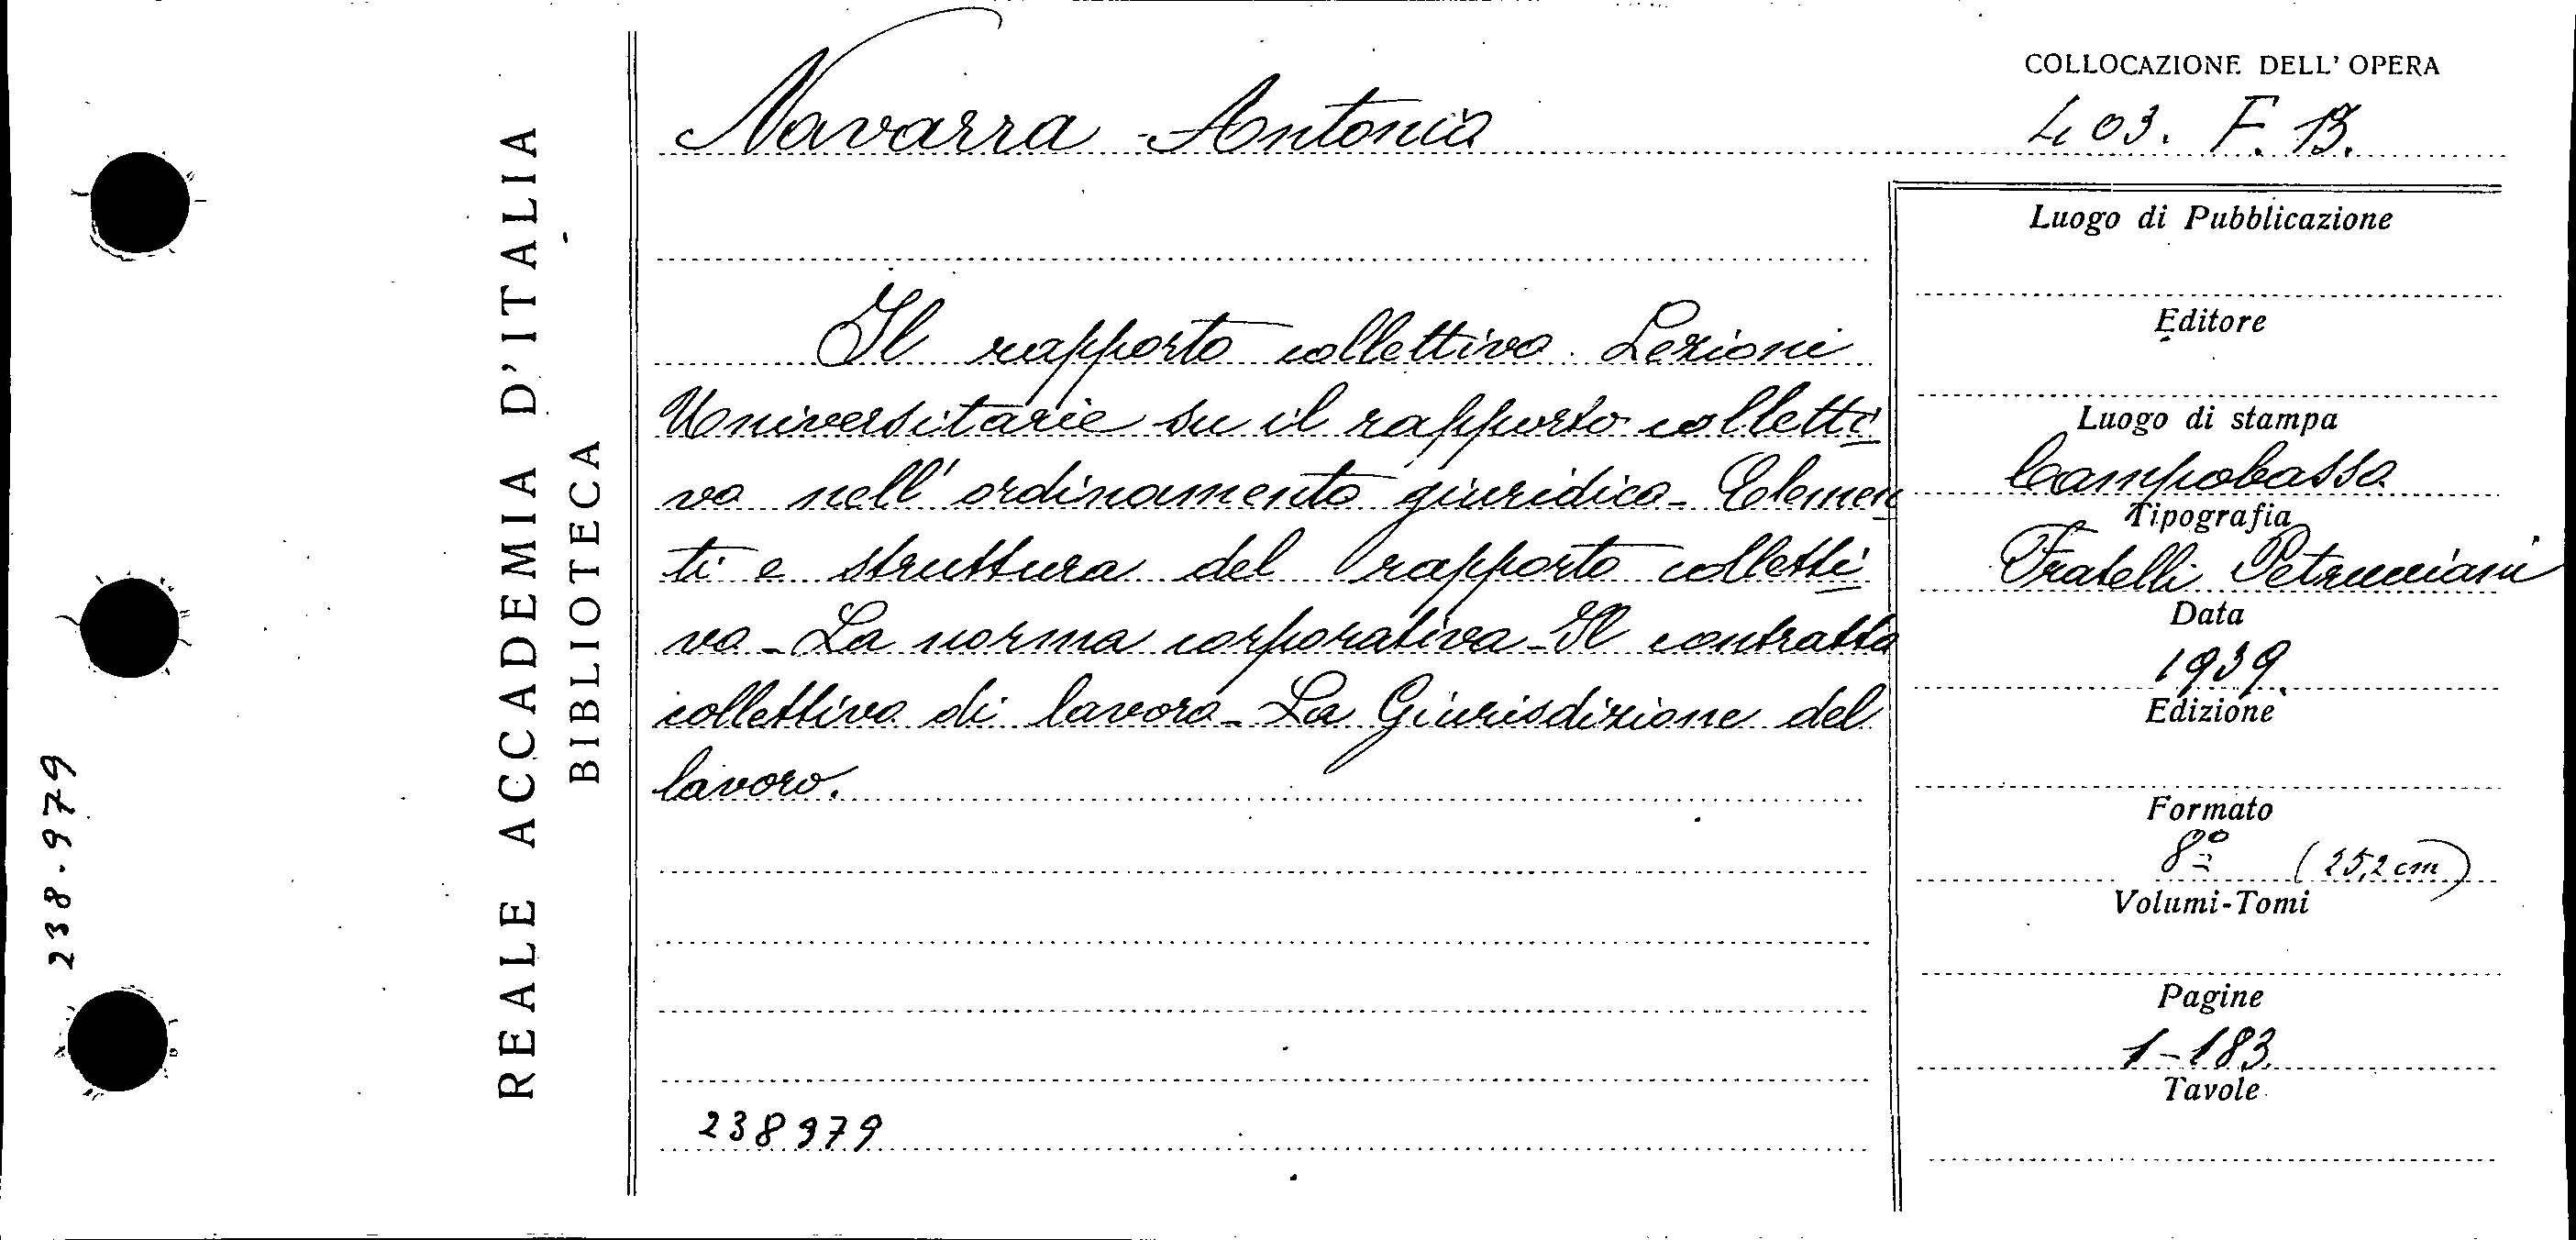 COLLOCAZIONE DELL' OPERA
Navarra Antonio
403. F. 13.
REALE ACCADEMIA D'ITALIA
BIBLIOTECA
238.979
Il rapporto collettivo. Lezioni
Universitarie su il rapporto colletti
vo nell' ordinamento giuridico - Elemen
ti e struttura del rapporto colletti
vo - La norma corporativa - Il contratto
collettivo di lavoro - La Giurisdizione del
lavoro.
238979
Luogo di Pubblicazione
Editore
Luogo di stampa
Campobasso
Tipografia
Fratelli Petrucciani
Data
1939.
Edizione
Formato
8º (25,2 cm)
Volumi-Tomi
Pagine
1-183.
Tavole